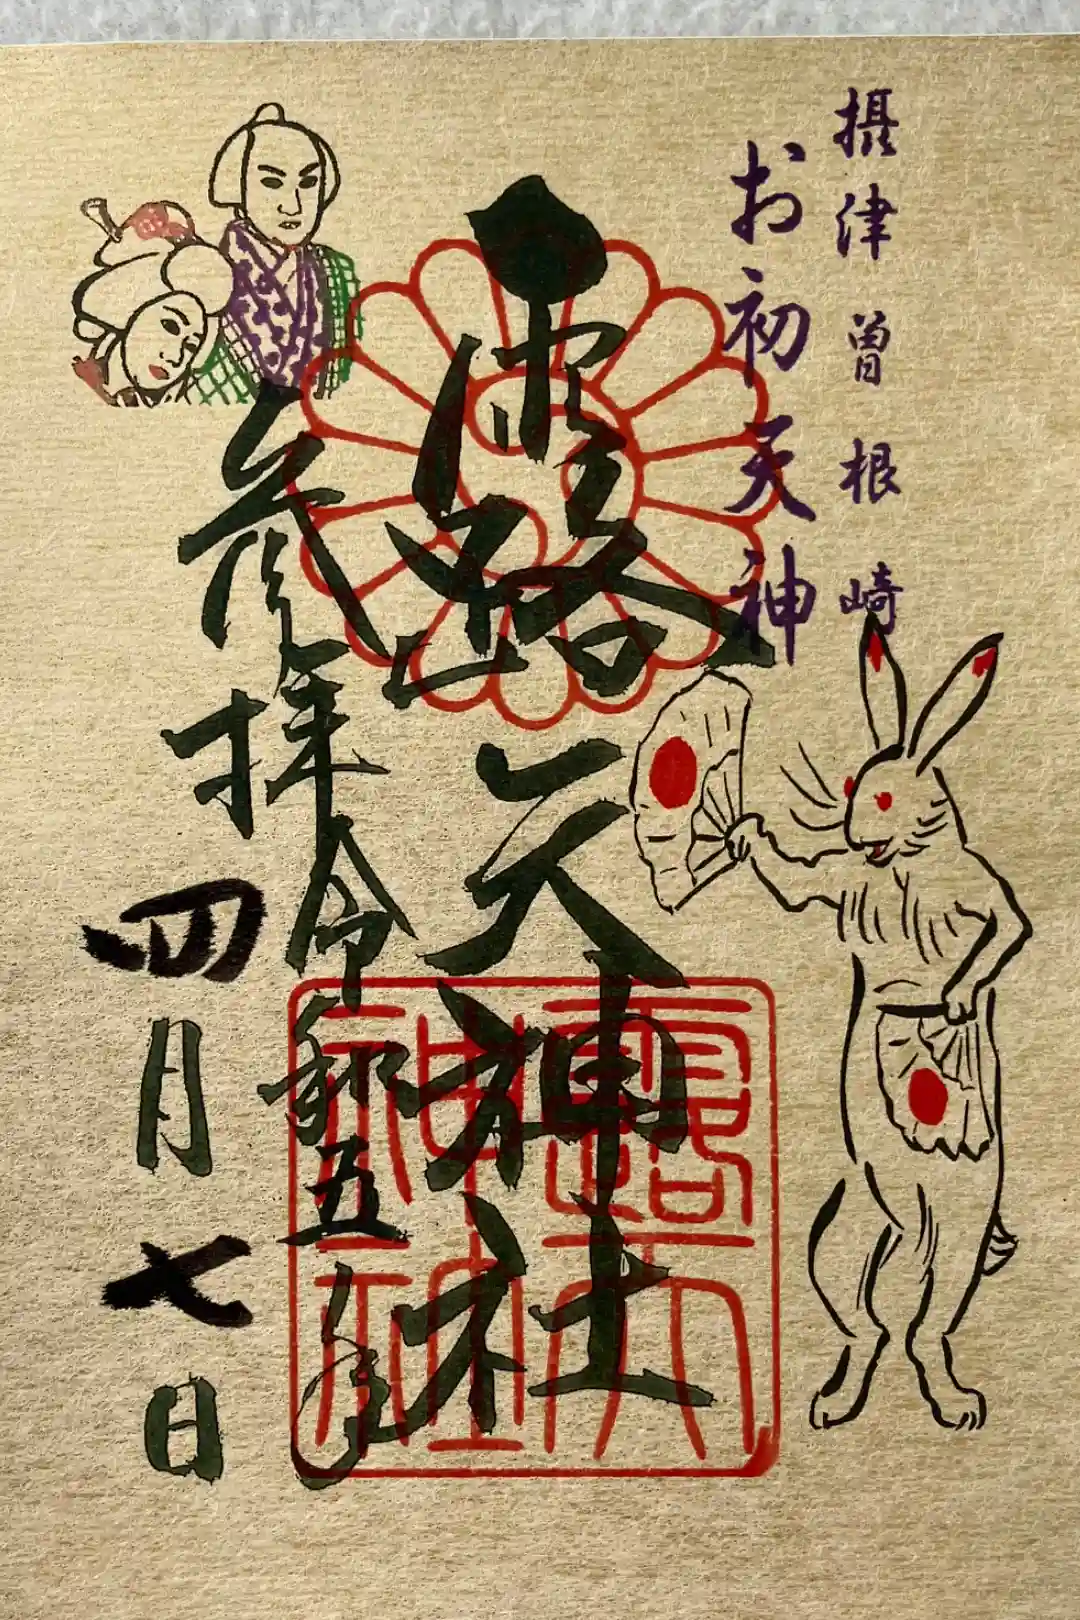 摂津曽根崎
お初天神
露天神社
参拝令和五年
四月七日
露天
神社